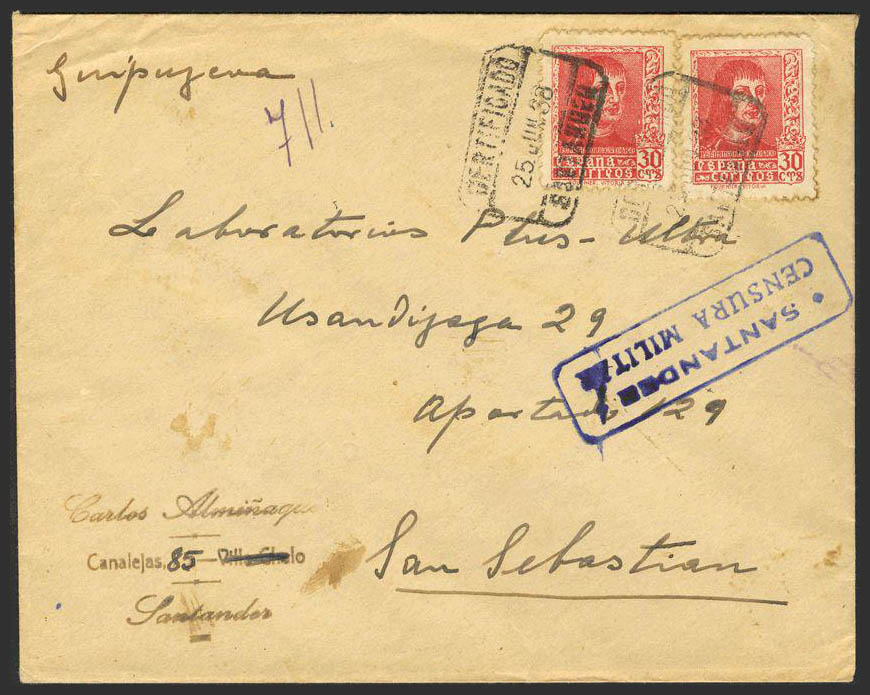 Guipuzcoa
711.
CERTIFICADO
25 JUN. 38
SANTANDER
ESPAÑA 30
CORREOS CTS
ESPAÑA 30
CORREOS CTS
Laboratorios Plus-Ultra
Usandizaga 29
Apartado 129
San Sebastian
SANTANDER
CENSURA MILITAR
Carlos Almiñaque
Canalejas, 85 - Villa Chelo
Santander